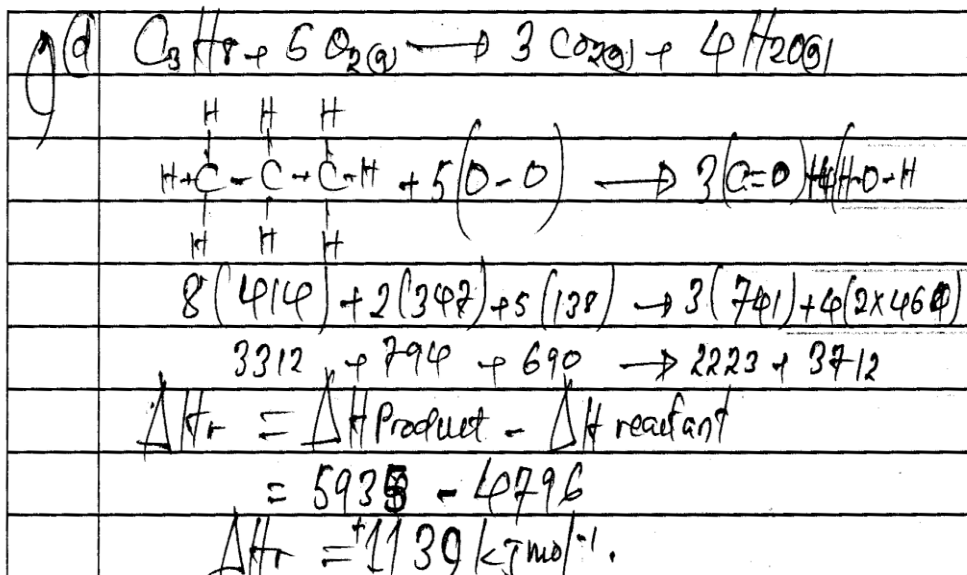 9 (d) C₃H₈ + 5 O₂(g) → 3 CO₂(g) + 4 H₂O(g)
H H H
H-C-C-C-H + 5(O-O) → 3(C=O) + 4(H-O-H
H H H
8(414) + 2(347) + 5(138) → 3(741) + 4(2×464)
3312 + 794 + 690 → 2223 + 3712
ΔHr = ΔH Product - ΔH reactant
= 5935 - 4796
ΔHr = +1139 kJmol⁻¹.